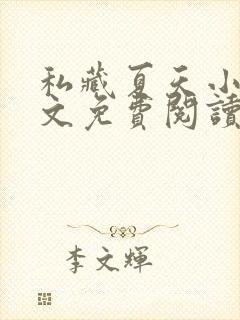 私藏夏天小
文免費閱讀
李文輝